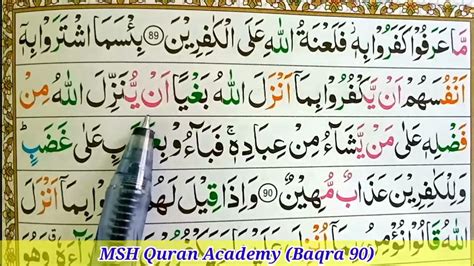 مَّا عَرَفُوْا كَفَرُوْا بِهٖ فَلَعْنَةُ اللّٰهِ عَلَى الْكٰفِرِيْنَ 89 بِئْسَمَا اشْتَرَوْا بِهٖۤ
اَنْفُسَهُمْ اَنْ يَّكْفُرُوْا بِمَاۤ اَنْزَلَ اللّٰهُ بَغْيًا اَنْ يُّنَزِّلَ اللّٰهُ مِنْ
فَضْلِهٖ عَلٰى مَنْ يَّشَآءُ مِنْ عِبَادِهٖ ۚ فَبَآءُوْ عَلٰى غَضَبٍ ؕ
وَلِلْكٰفِرِيْنَ عَذَابٌ مُّهِيْنٌ 90 وَاِذَا قِيْلَ لَهُمْ بِمَاۤ اَنْزَلَ
اللّٰهُ قَالُوْا نُؤْمِنُ وَهُوَ
MSH Quran Academy (Baqra 90)